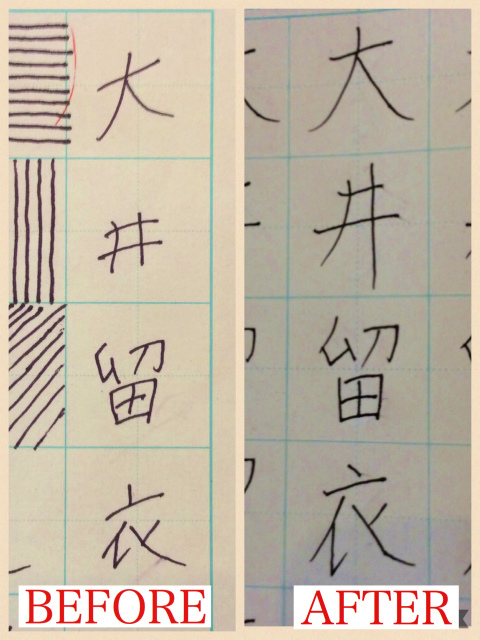 大井留衣
大井留衣
BEFORE
AFTER